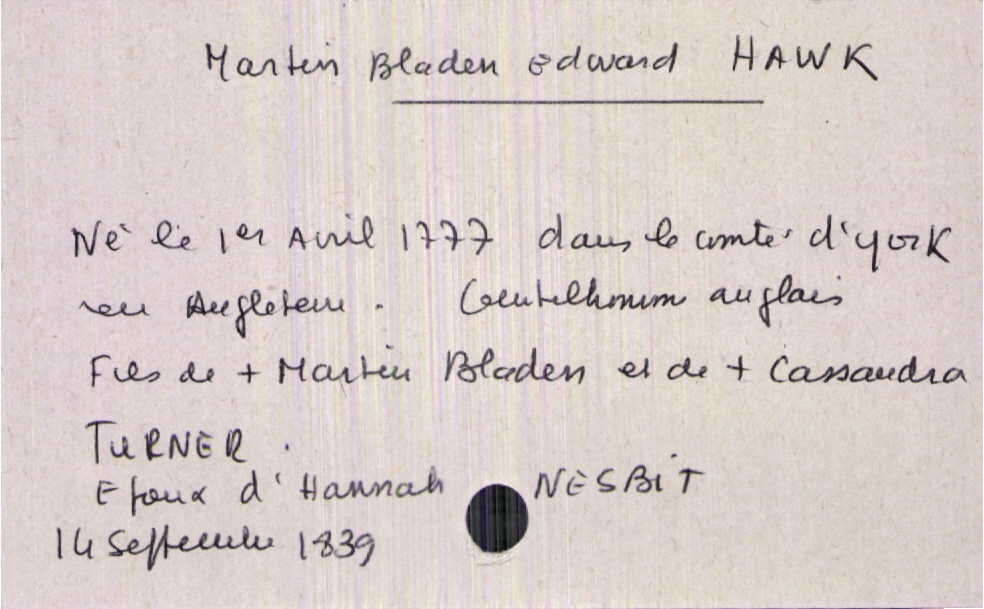 Martin Bladen Edward HAWK
Né le 1er Avril 1777 dans le comté d'york
en Angleterre. Gentelhomme anglais
Fils de + Martin Bladen et de + Cassandra
TURNER.
Epoux d'Hannah NESBIT
14 Septembre 1839